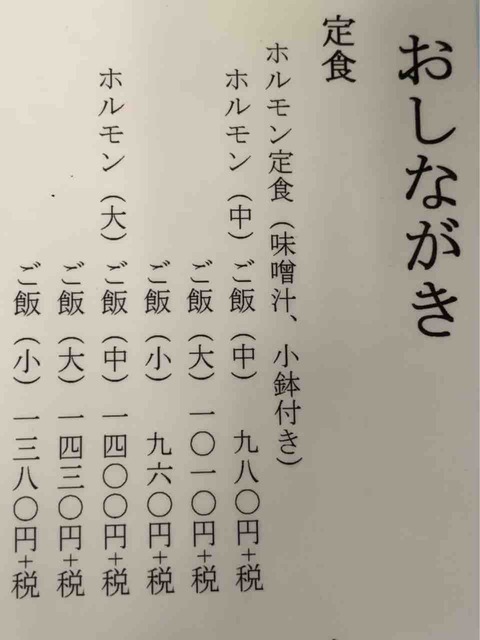 おしながき
定食
ホルモン定食（味噌汁、小鉢付き）
ホルモン（中）ご飯（中）　九八〇円+税
ご飯（大）一〇一〇円+税
ご飯（小）　九六〇円+税
ホルモン（大）ご飯（中）一四〇〇円+税
ご飯（大）一四三〇円+税
ご飯（小）一三八〇円+税